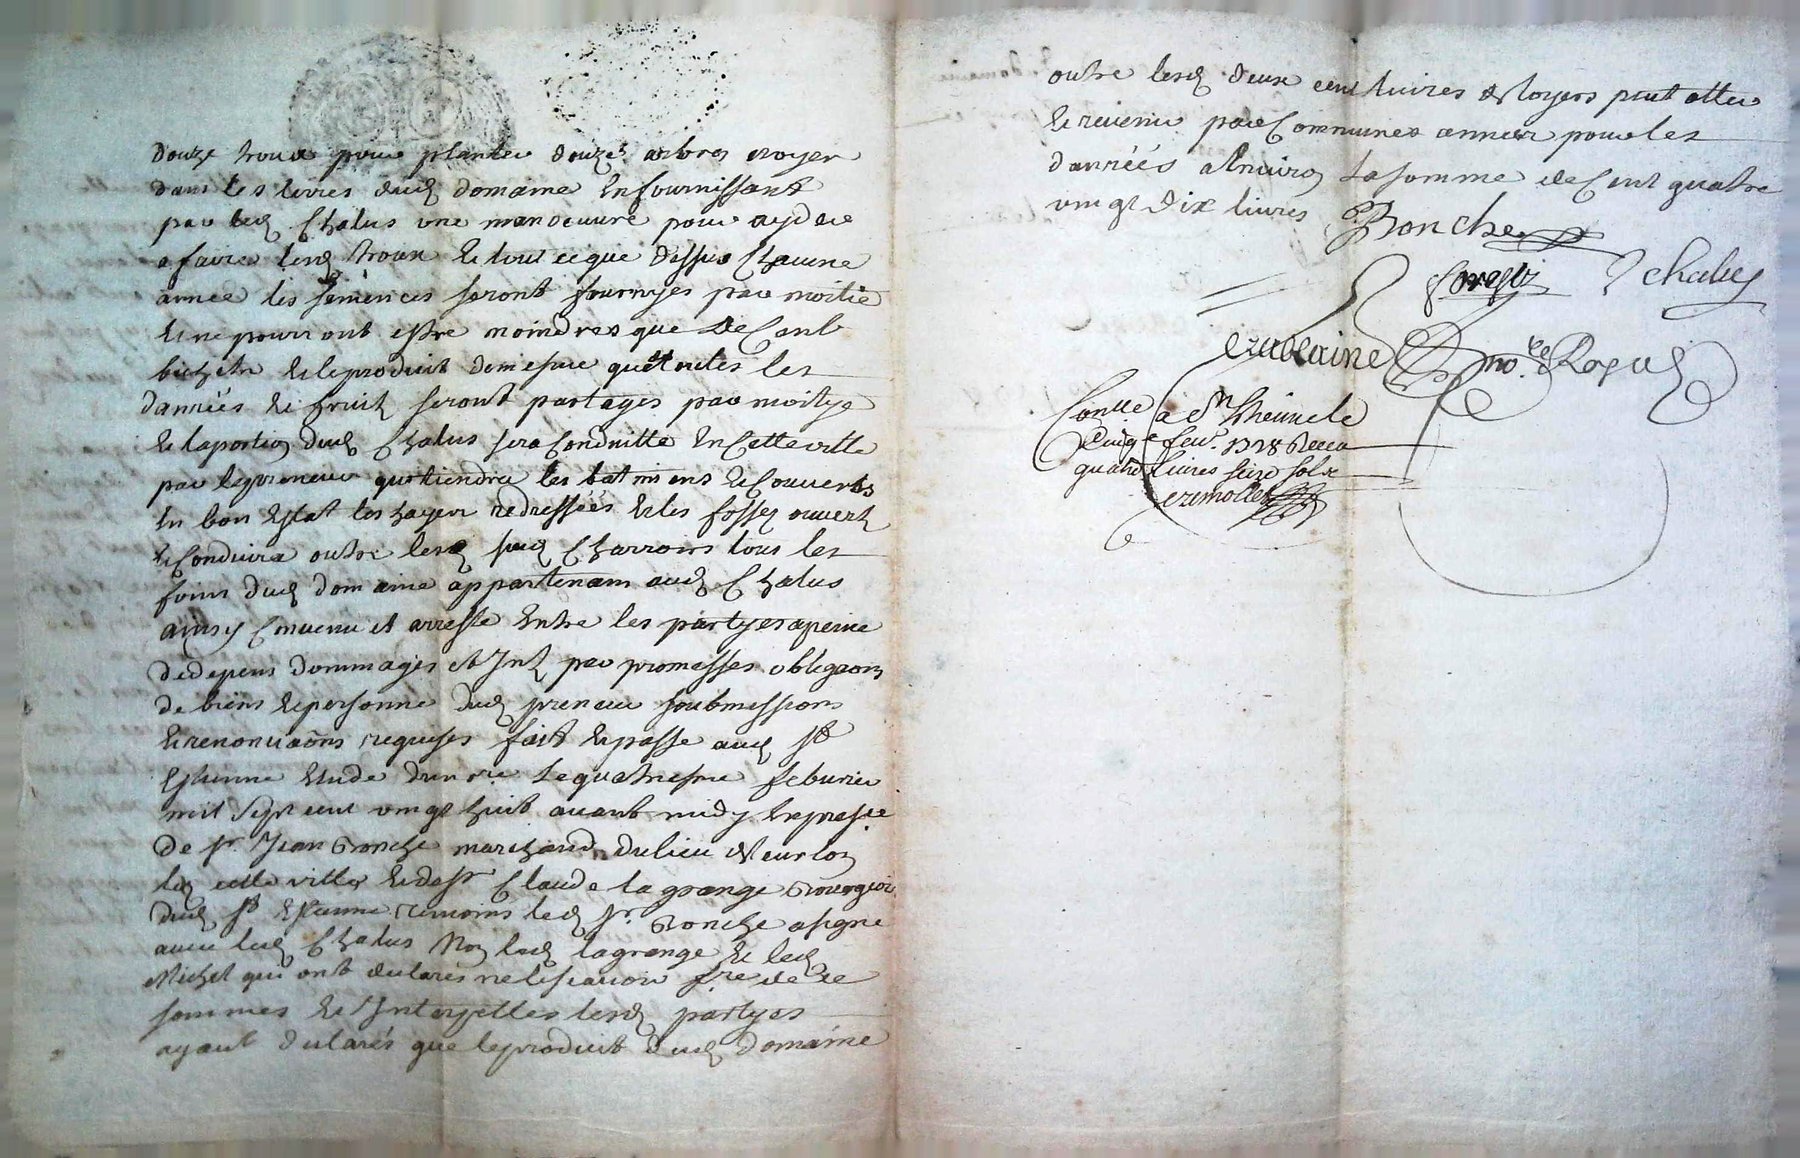 douze troux pour planter douze arbres noyer
dans les terres dud domaine en fournissant
par led Chalus une manoeuvre pour ayder
a faire lesd troux et tout ce que dessus Chacune
année les semences seront fournyes par moitié
et ne pourront estre moindres que de Cent
bichets et le produit diceux que toutes les
danrées et fruits seront partagés par moityé
et la portion dud Chalus sera Conduitte en Cette ville
par le preneur qui tiendra les batimens et Couverts
en bon estat les hayes redressées et les fossez ouverts
et Conduira outre lesd Charrois tous les
foins dud domaine appartenans aud Chalus
ainsy Convenu et arresté entre les partyes a peine
de depens dommages et Int par promesses obligaons
de biens et personne dud preneur soubmissions
et renonciaons requises fait et passé aud St
Estienne etude du no.re le quatriesme feburier
mil sept cent vingt huit avant midy en prese
de Sr. Jean Bonche marchand du lieu
cette ville et de Sr Claude Lagrange Bourgeois
dud St Estienne temoins led Sr. Bonche a signé
avec led Chalus Non led Lagrange et led
Michel qui ont declarés ne le scavoir f.re de ce
sommes et Interpelles lesd partyes
ayant declarés que le produit dud domaine
outre lesd deux cent livres de loyers peut aller
de revenu par Communes années pour les
danrées a environ La somme de Cent quatre
vingt dix livres Bonche
Chalus
no.re Royal
Con.lle a St Etienne le
Cinq.e fev.r 1728 Receu
quatre livres seize sols